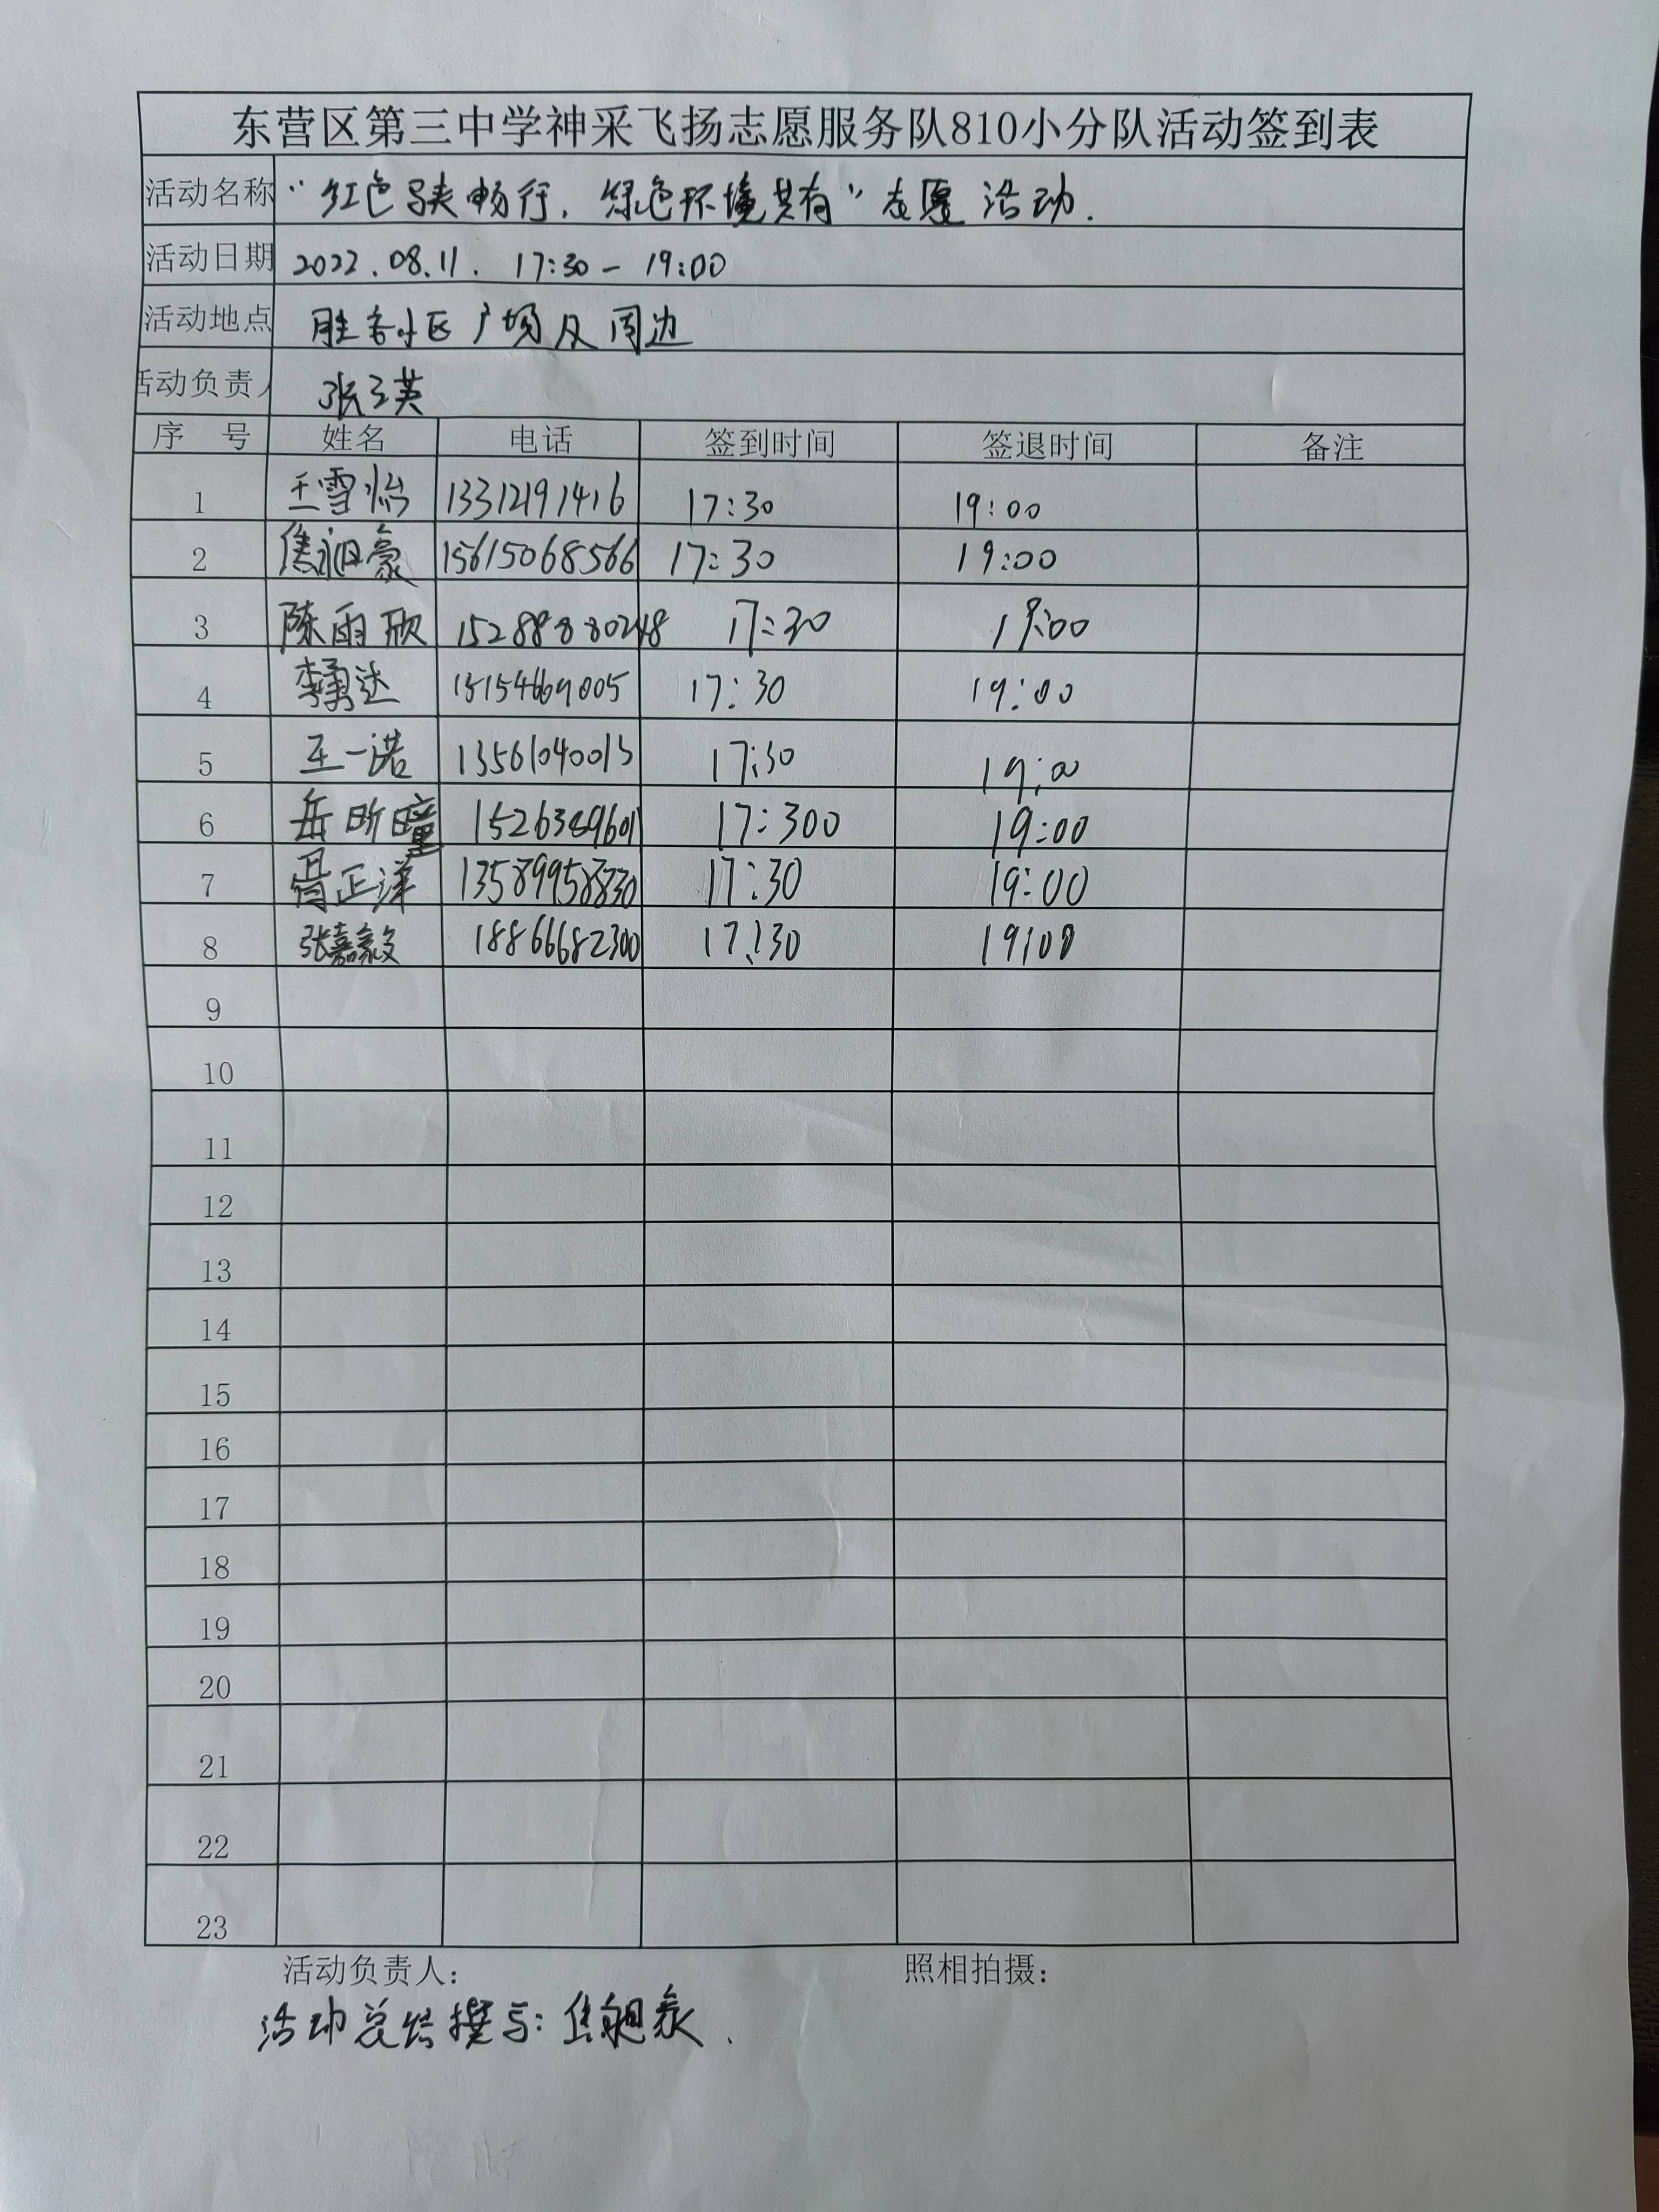 东营区第三中学神采飞扬志愿服务队810小分队活动签到表
活动名称 “红色导夹畅行，绿色环境共有”志愿活动.
活动日期 2022.08.11. 17:30-19:00
活动地点 胜客小区广场及周边
活动负责人 张玉英
序 号 姓名 电话 签到时间 签退时间 备注
1 王雪怡 13312191416 17:30 19:00
2 焦昶豪 15615068566 17:30 19:00
3 陈雨欣 15288880248 17:30 19:00
4 李勇达 15154669005 17:30 19:00
5 王一诺 13561040013 17:30 19:00
6 岳昕瞳 15263889601 17:300 19:00
7 胥正洋 13589958830 17:30 19:00
8 张嘉 18866682300 17:30 19:00
9
10
11
12
13
14
15
16
17
18
19
20
21
22
23
活动负责人： 照相拍摄：
活动总结撰写：焦昶豪.